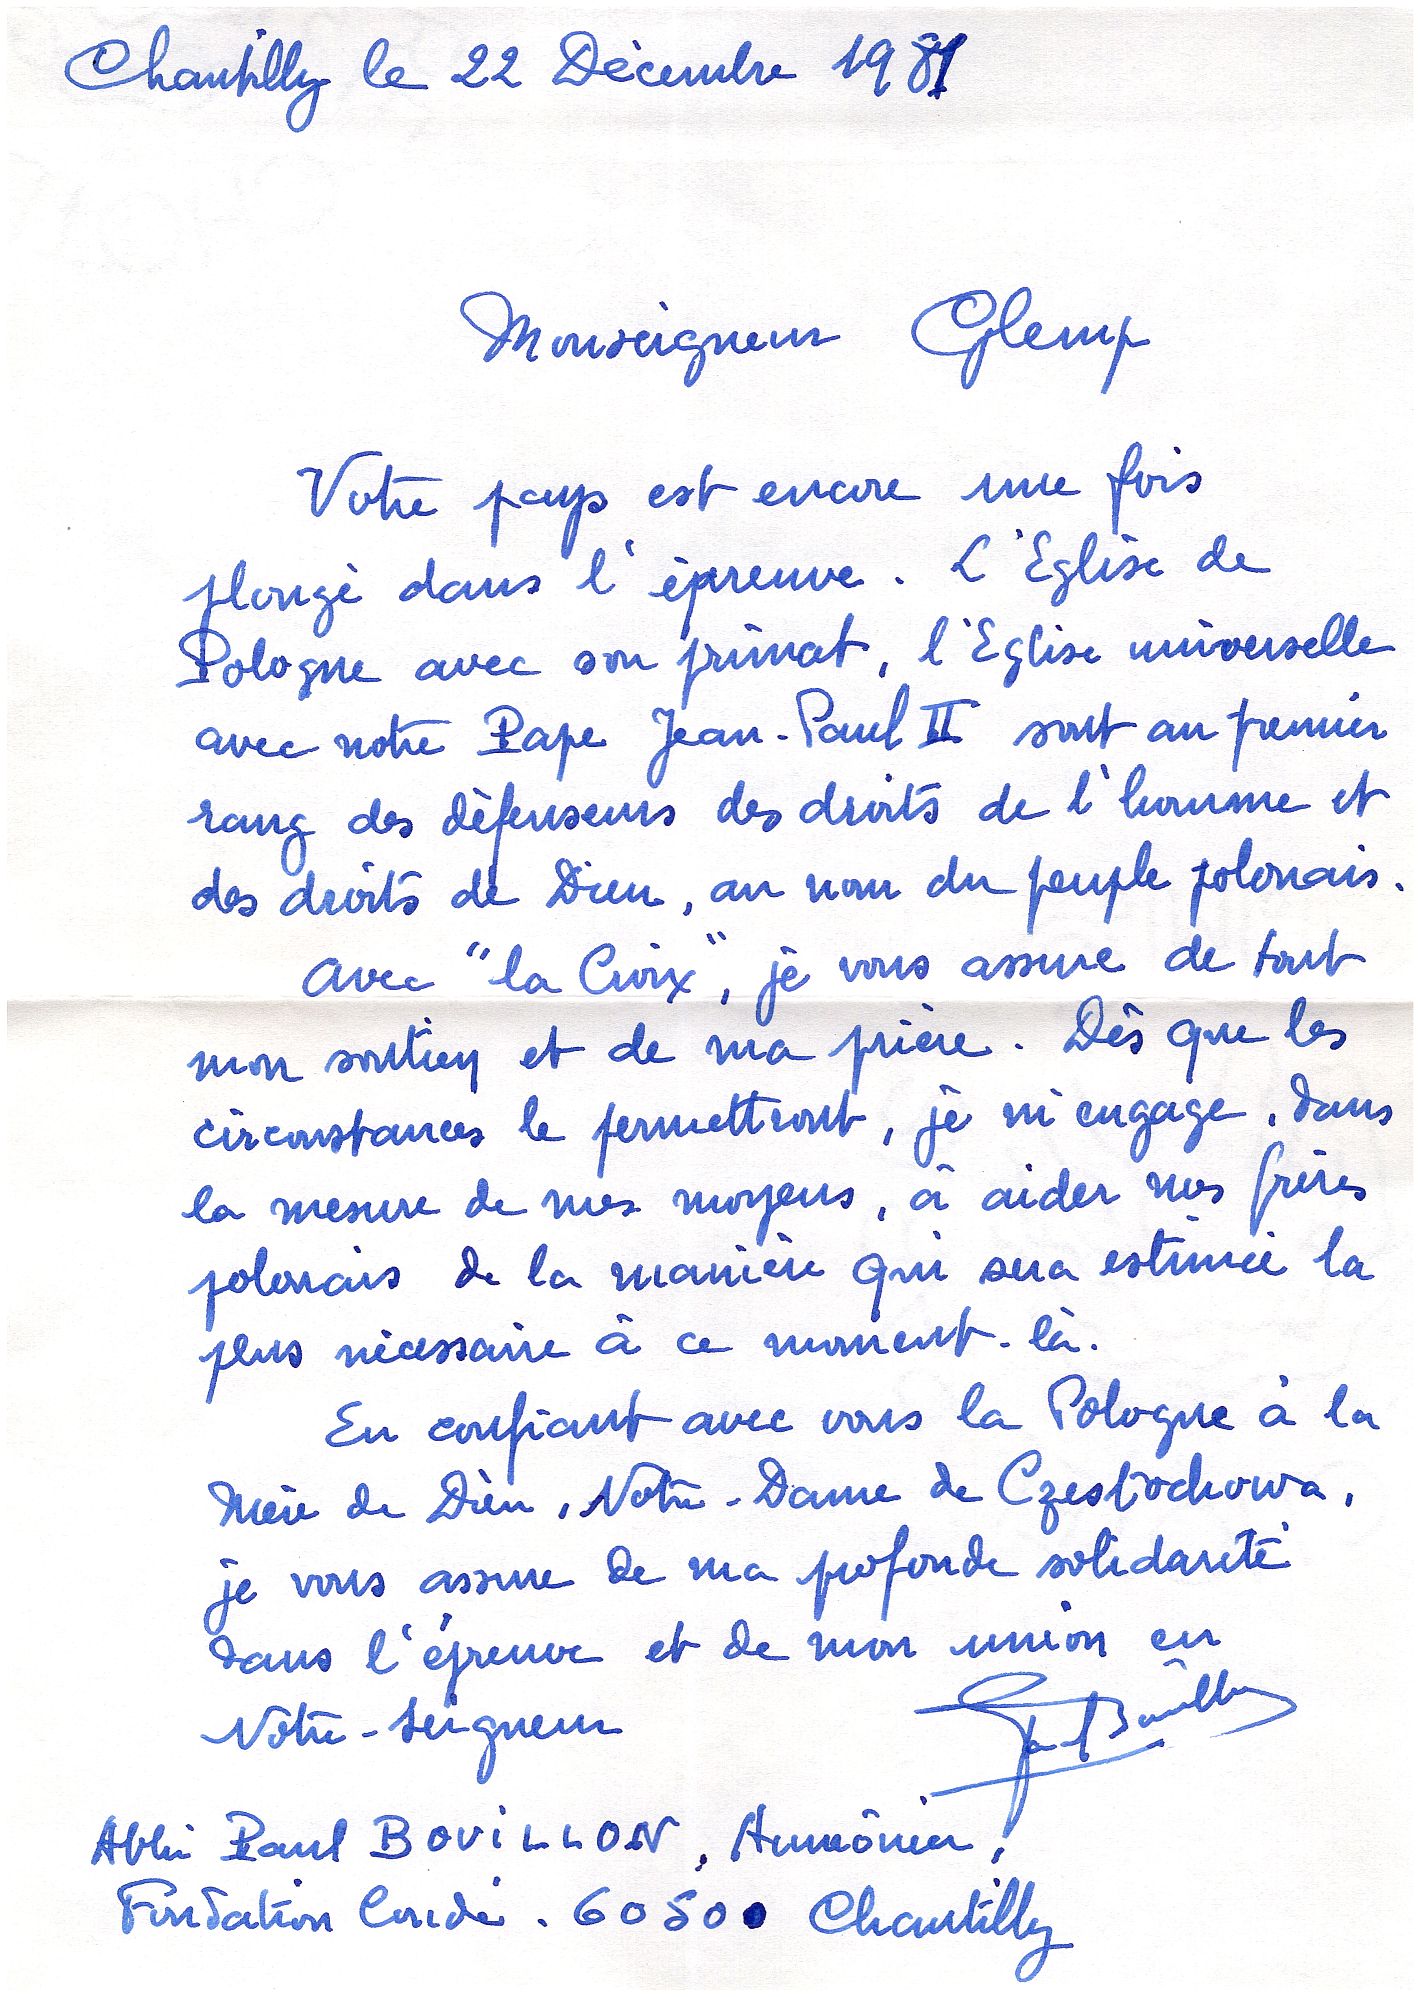 Chantilly le 22 Décembre 1981
Monseigneur Glemp
Votre pays est encore une fois
plongé dans l'épreuve. L'Eglise de
Pologne avec son primat, l'Eglise universelle
avec notre Pape Jean-Paul II sont au premier
rang des défenseurs des droits de l'homme et
des droits de Dieu, au nom du peuple polonais.
Avec "la Croix", je vous assure de tout
mon soutien et de ma prière. Dès que les
circonstances le permettront, je m'engage, dans
la mesure de mes moyens, à aider nos frères
polonais de la manière qui sera estimée la
plus nécessaire à ce moment-là.
En confiant avec vous la Pologne à la
Mère de Dieu, Notre-Dame de Czestochowa,
je vous assure de ma profonde solidarité
dans l'épreuve et de mon union en
Notre-Seigneur
Paul Bouillon
Abbé Paul BOUILLON, Aumônier,
Fondation Condé. 60500 Chantilly